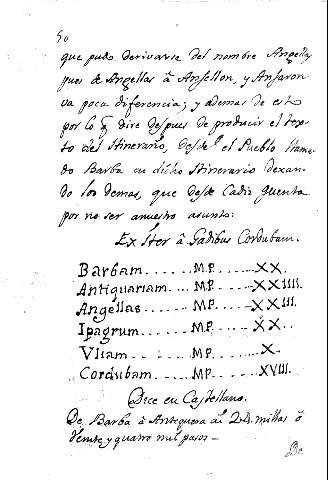 50
que pudo derivarse del nombre Angellas,
pues de Angellas â Ansellon, y Ansaron
va poca diferencia; y ademas de esto
por lo q dire despues de producir el tex-
to del Itinerario, desde el Pueblo llama-
do Barba en dicho Itinerario dexan-
do los demas, que desde Cadiz quenta
por no ser anuestro asunto:
Ex Iter â Gadibus Cordubam.
Barbam...... M.P. ......XX.
Antiquariam... M.P. .....XXIIII.
Angellas...... M.P. .....XXIII.
Ipagrum...... M.P. ......XX.
Vliam...... M.P. ......X.
Cordubam...... M.P. ......XVIII.
Dice en Castellano.
De Barba â Antequera ai 24. millas ô
veinte y quatro mil pasos-
De